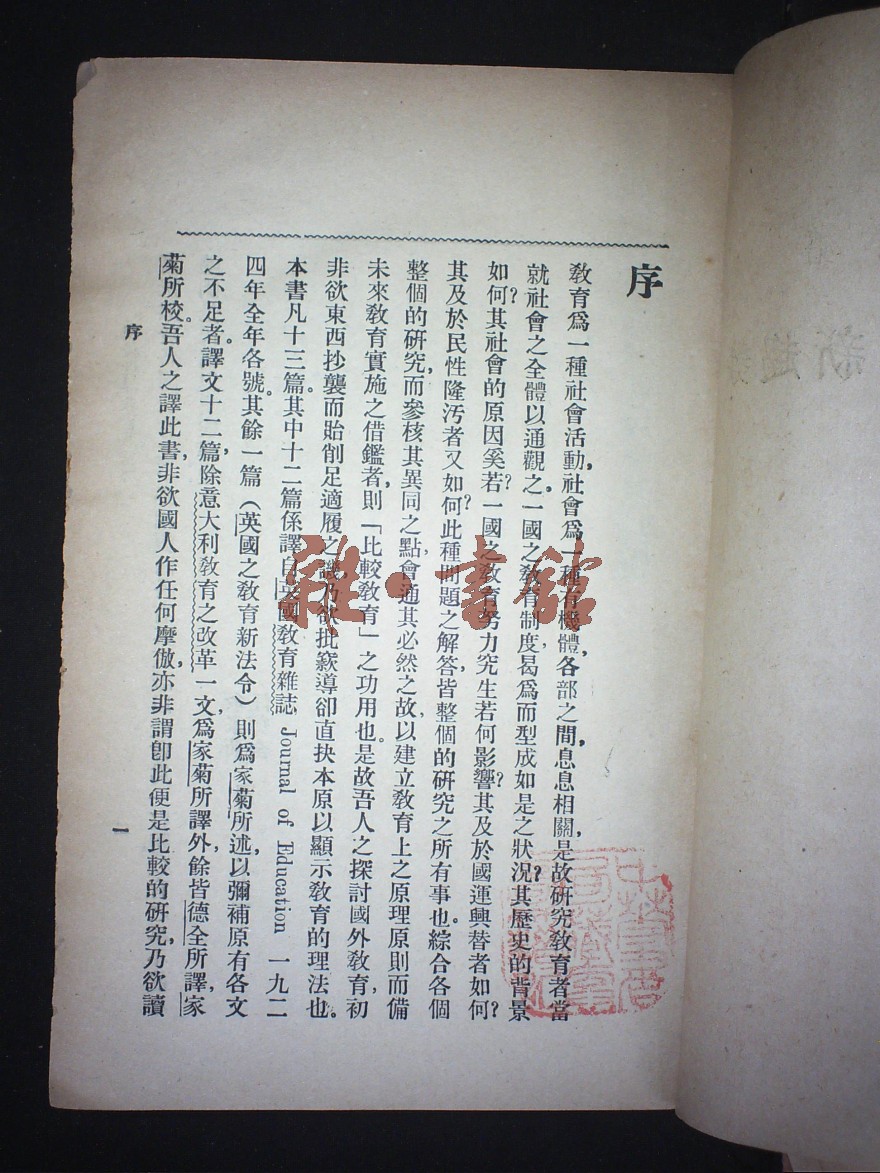 序
教育爲一種社會活動，社會爲一種有機體，各部之間，息息相關，是故研究教育者當
就社會之全體以通觀之。一國之教育制度曷爲而型成如是之狀況？其歷史的背景
如何？其社會的原因奚若？一國之教育努力究生若何影響？其及於國運興替者如何？
其及於民性隆汚者又如何？此種問題之解答，皆整個的研究之所有事也。綜合各個
整個的研究，而參核其異同之點，會通其必然之故，以建立教育上之原理原則，而備
未來教育實施之借鑑者，則「比較教育」之功用也。是故吾人之探討國外教育，初
非欲東西抄襲而貽削足適履之譏，乃欲批窾導卻直抉本原以顯示教育的理法也。
本書凡十三篇。其中十二篇係譯自英國教育雜誌 Journal of Education 一九二
四年全年各號。其餘一篇（英國之教育新法令）則爲家菊所述，以彌補原有各文
之不足者。譯文十二篇，除意大利教育之改革一文，爲家菊所譯外，餘皆德全所譯，家
菊所校。吾人之譯此書，非欲國人作任何摩倣，亦非謂卽此便是比較的研究，乃欲讀
序
一
雅·書館